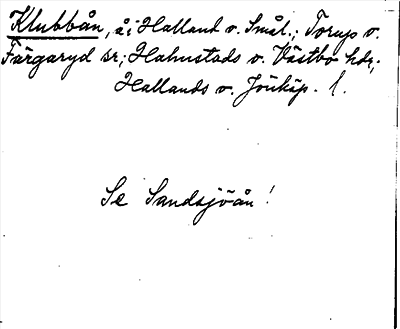 Klubbån, å i Halland o. Smål.; Torup o.
Färgaryd sr; Halmstads o. Västbo hdr;
Hallands o. Jönköp. l.
Se Sandsjöån!